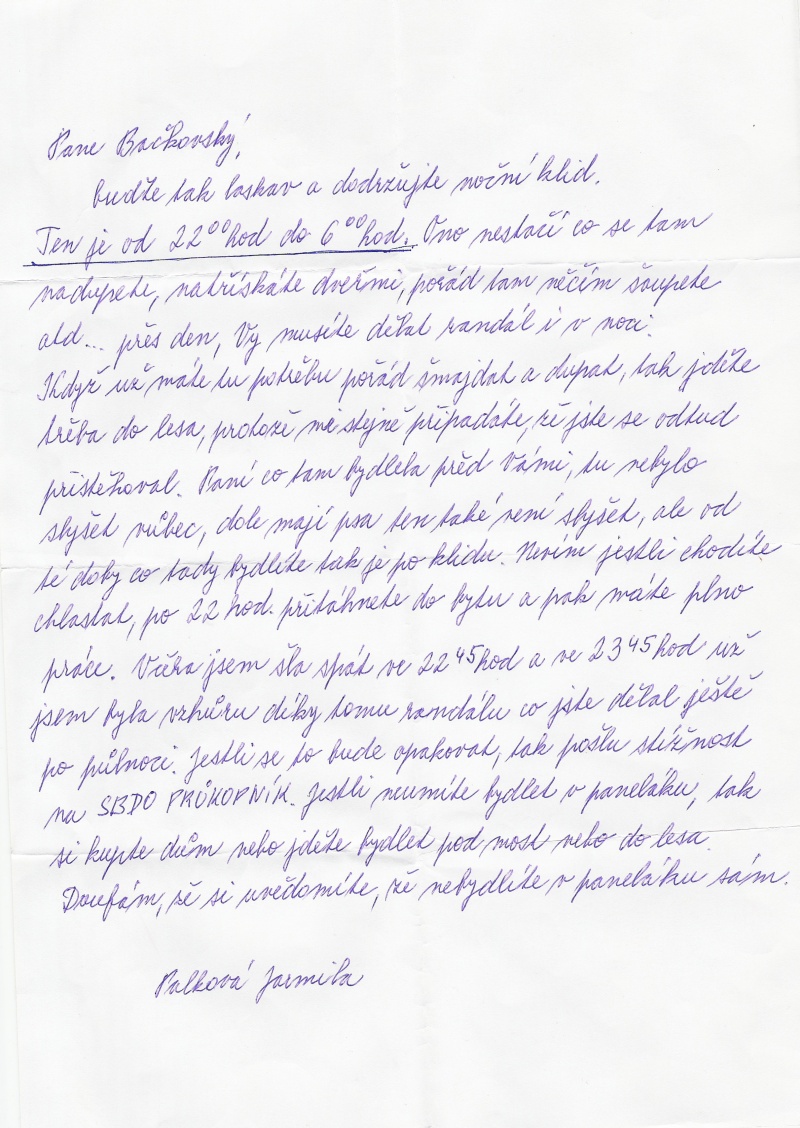 Pane Bačkovský,
buďte tak laskav a dodržujte noční klid.
Ten je od 22⁰⁰hod do 6⁰⁰hod. Ono nestačí co se tam
nadupete, natřískáte dveřmi, pořád tam něčím šoupete
atd... přes den, Vy musíte dělat randál i v noci.
Když už máte tu potřebu pořád šmajdat a dupat, tak jděte
třeba do lesa, protože mě stejně připadáte, že jste se odtud
přistěhoval. Paní co tam bydlela před Vámi, tu nebylo
slyšet vůbec, dole mají psa ten také není slyšet, ale od
té doby co tady bydlíte tak je po klidu. Nevím jestli chodíte
chlastat, po 22 hod. přitáhnete do bytu a pak máte plno
práce. Včera jsem šla spát ve 22⁴⁵hod a ve 23⁴⁵hod už
jsem byla vzhůru díky tomu randálu co jste dělal ještě
po půlnoci. Jestli se to bude opakovat, tak pošlu stížnost
na SBDO PRŮKOPNÍK. Jestli neumíte bydlet v paneláku, tak
si kupte dům nebo jděte bydlet pod most nebo do lesa.
Doufám, že si uvědomíte, že nebydlíte v paneláku sám.
Palková Jarmila